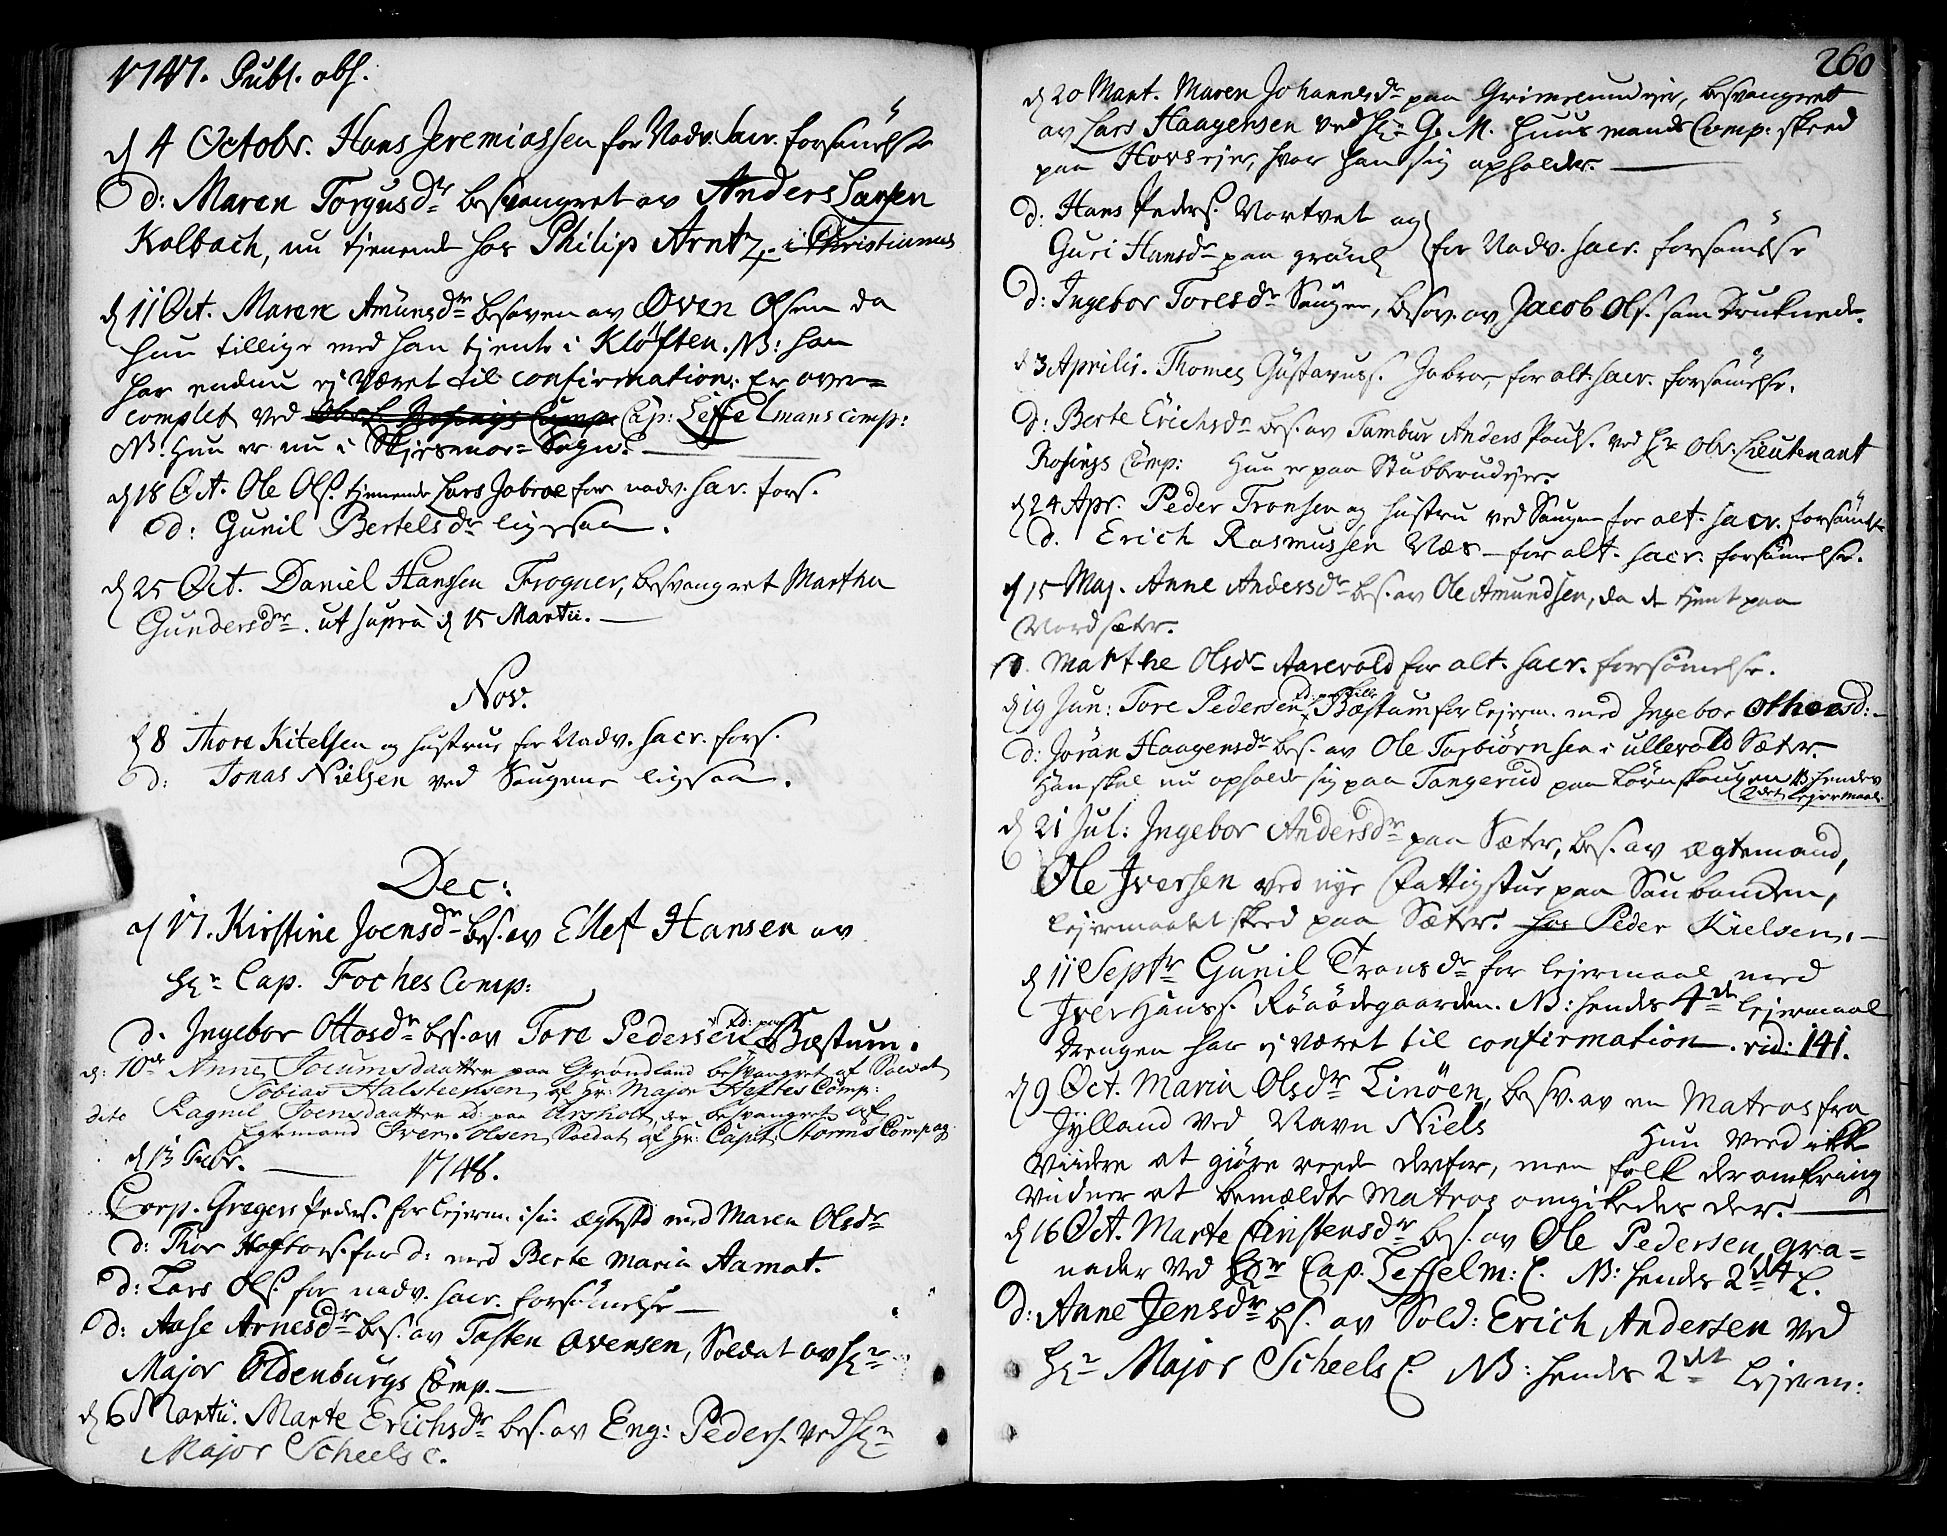 1747. Publ. abs.
d 4 Octobr. Hans Jeremiassen for Nadv. Sacr. forsömelse
d: Maren Torgusdr besvangret av Anders Larsen
Kalbach, nu tjenende hos Philip Arntz. i Christiania
d 11 Oct. Maren Amundsdr besoven av Oven Olsen da
hun tillige med han tjente i Kløften. NB: han
har endnu ej været til confirmation: Er over=
complet ved Cap: Leffelmans comp:
NB. Hun er nu i Skjesmoe=Sogn.
d 18 Oct. Ole Ols. tjenende Lars Jabroe for nadv. sac. fors.
d: Gunil Bertelsdr ligesaa.
d 25 Oct. Daniel Hanssen Frogner, besvangret Martha
Gundersdr. ut supra d 15 Martii.
Nov.
d 8 Thore Kitelsen og hustrue for Nadv. sacr. fors.
d: Jonas Nielsen ved Saugene ligesaa.
Dec:
d 17. Kirstine Joensdr bes. av Ellef Hansen av
Hr Cap. Foches Comp:
d. Ingebor Ottosdr bes. av Tore Pedersen Bæstum.
d: 10de Anne Jocumsdaatter paa Grøndland besvangret af Soldat
Tobias Halsteensen af Hr: Major Heftes Comp:
dito Ragnil Joensdaatter paa Aasholt, er besvangret af
Egtemand Iver Olsen Soldat af Hr: Capit: Storms Compag:
d 13 Febr. 1748.
Corp. Gregers Peders. for lejerm. i sin ægtestd med Maren Olsdr
d: Thor Haftors. for d: med Berte Maria Aamot.
d: Lars Ols. for nadv. sacr. forsömelse
d: Aase Arnesdr bes. av Tosten Ovensen, Soldat av Hr
Major Oldenburgs Comp.
d 6 Martii. Marte Erichsdr bes. av Eng: Peders. ved Hr
Major Scheels c.
260
d 20 Mart. Maren Johannesdr paa Grimerundejer, besvangret
av Lars Haagensen ved Hr G. M. Huusmands Comp: skeed
paa Hovsejer, hvor han sig opholder.
d. Hans Peders. Vortvet og
Guri Hansdr paa grönl for Nadv. sacr. forsömelse
d: Ingebor Toresdr Saugen, besov. av Jacob Ols. som druknede.
d 3 Aprilis. Thomes Gustavuss. Jabroe, for alt. sacr. forsömelse.
d: Berte Erichsdr bes. av Tambur Anders Pouls. ved Hr Obr: Lieutenant
Rosings Comp: Hun er paa Stubberudejer.
d 24 Apr. Peder Tronsen og hustru ved Saugen for alt. sacr. forsömelse
d. Erich Rasmussen Næs for alt. sacr. forsömelse.
d 15 Maj. Anne Andersdr bes. av Ole Amundsen, da de tjent paa
Nordsæter.
d. Marthe Olsdr Aarevold for alt. sacr. forsömelse.
d 19 Jun: Tore Pedersen Bæstum for lejerm. med Ingebor Othersd:
d. Jöran Haagensdr bes. av Ole Torbiörnsen i ullevold Sæter
Han skal nu opholde sig paa Tangerud paa Lörenskougen NB: hendes
2det lejermaal.
d 21 Jul: Ingebor Andersdr paa Sæter, bes. av ægtemand,
Ole Iversen ved nye Fattigstue paa Saubanden,
lejermaalet skeed paa Sæter. hos Peder Kielsen.
d 11 Septr Gunil Tronsdr for lejermaal med
Iver Hanss. Röaödegaarden. NB: hendes 4de lejermaal
Drengen har ej været til confirmation. vid: 141.
d 9 Oct. Maria Olsdr Linöen, besv. av en Matros fra
Jylland ved Navn Niels Hun veed ikke
viidere at giøre reede derfor, men folk deromkring
vidner at bemældte Matros omgikedes der.
d 16 Oct. Marte Christensdr bes. av Ole Pedersen, gra=
nader ved Hr Cap. Leffelm: C. NB: hendes 2det L.
d: Anne Jensdr bes. av Sold: Erich Andersen ved
Hr Major Scheels C. NB: hendes 2det lejerm: